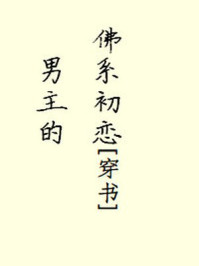 男主的
佛系初恋[穿书]